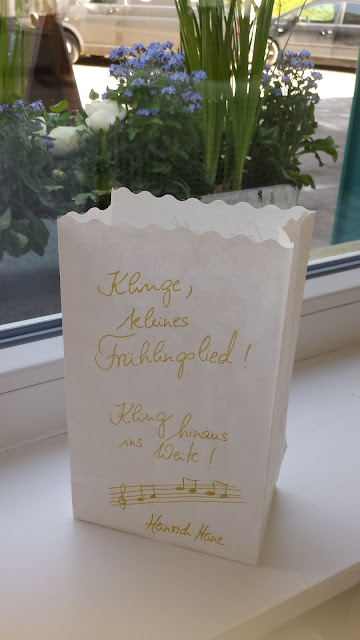 Klinge,
kleines
Frühlingslied!
Kling hinaus
ins Weite!
Heinrich Heine